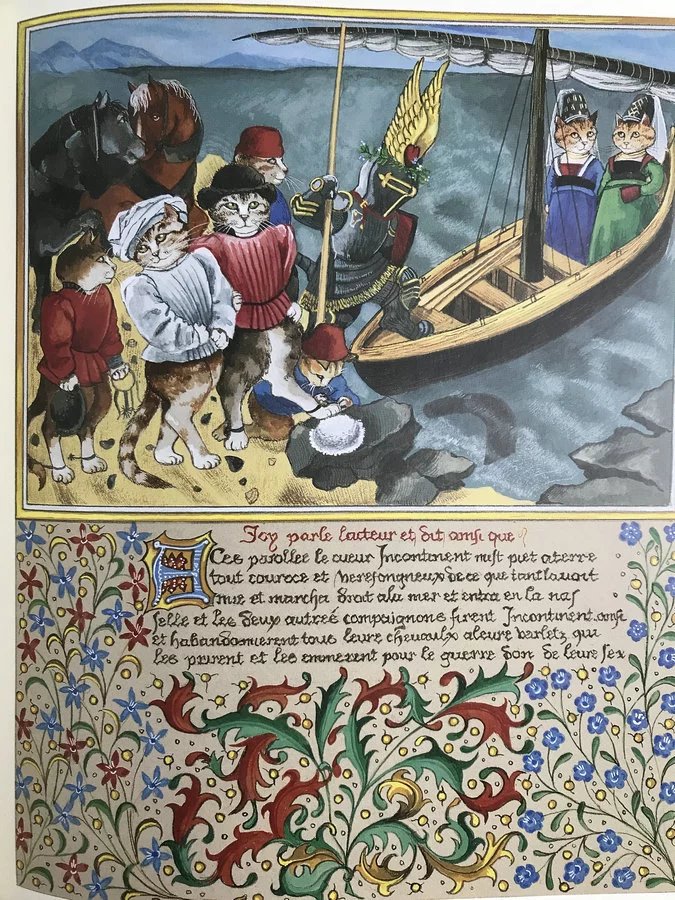 Joy parle lacteur et dit amsi que
A Ces parolles le cueur Incontinent mist piet a terre
tout couroce et veresongneux de ce que tant lavoit
mie et marcha droit alu mer et entra en la nas
selle et les deux autres compaignons firent Incontinent amsi
et habandonnerent tous leurs chevaulx aleurs varletz qui
les prurent et les emmerent pour le guerre don de leurs sex